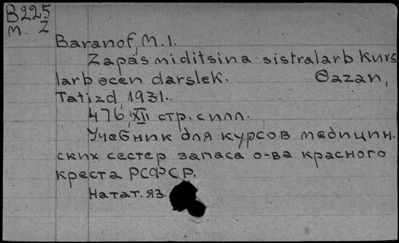 B225
M-Z
Baranof, M. I.
Zapas miditsina sistralarь kurs
larь ɵcen dərslek. Qazan,
Tatizd, 1931.
476, XII стр. с илл.
Учебник для курсов медицин
ских сестер запаса о-ва красного
креста РСФСР.
На тат. яз.